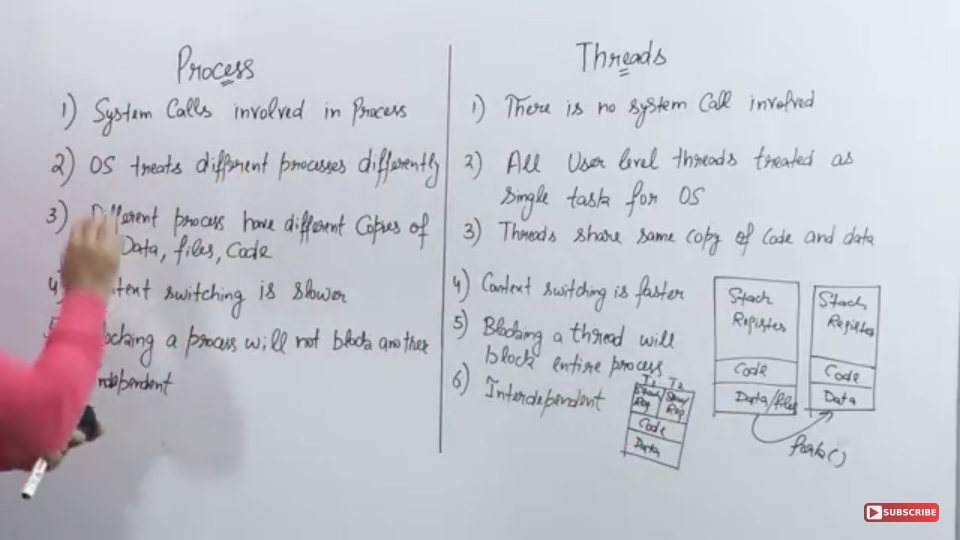 Process
1) System Calls involved in Process
2) OS treats different processes differently
3) Different process have different Copies of
Data, files, Code
4) context switching is slower
Blocking a process will not block another
Independent
Threads
1) There is no system Call involved
2) All User level threads treated as
single task for OS
3) Threads share same copy of code and data
4) Context switching is faster
5) Blocking a thread will
block entire process
6) Interdependent
T1 T2
Stack Stack
Reg Reg
Code
Data
Stack
Register
Code
Data/files
Stack
Register
Code
Data
fork()
SUBSCRIBE